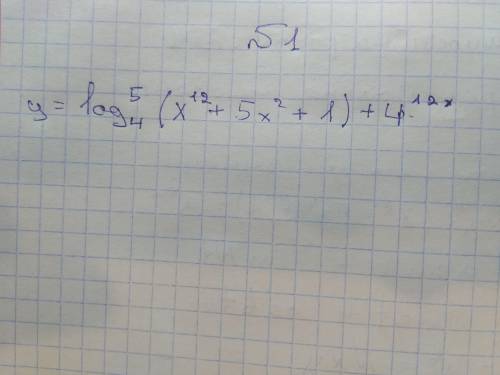 №1
y = log₄⁵ (x¹² + 5x² + 1) + 4¹²ˣ